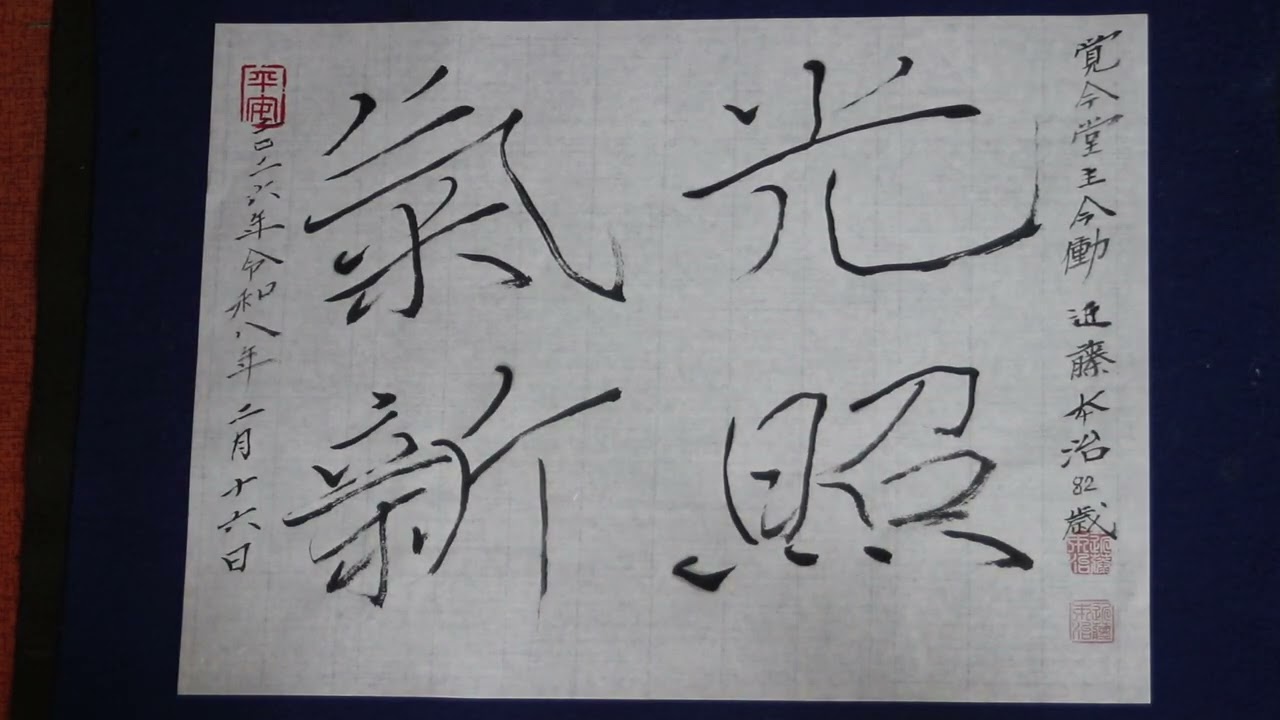 覚今堂主今働 近藤本治82歳
光照
氣新
〇二六年令和八年 二月十六日
近藤本治